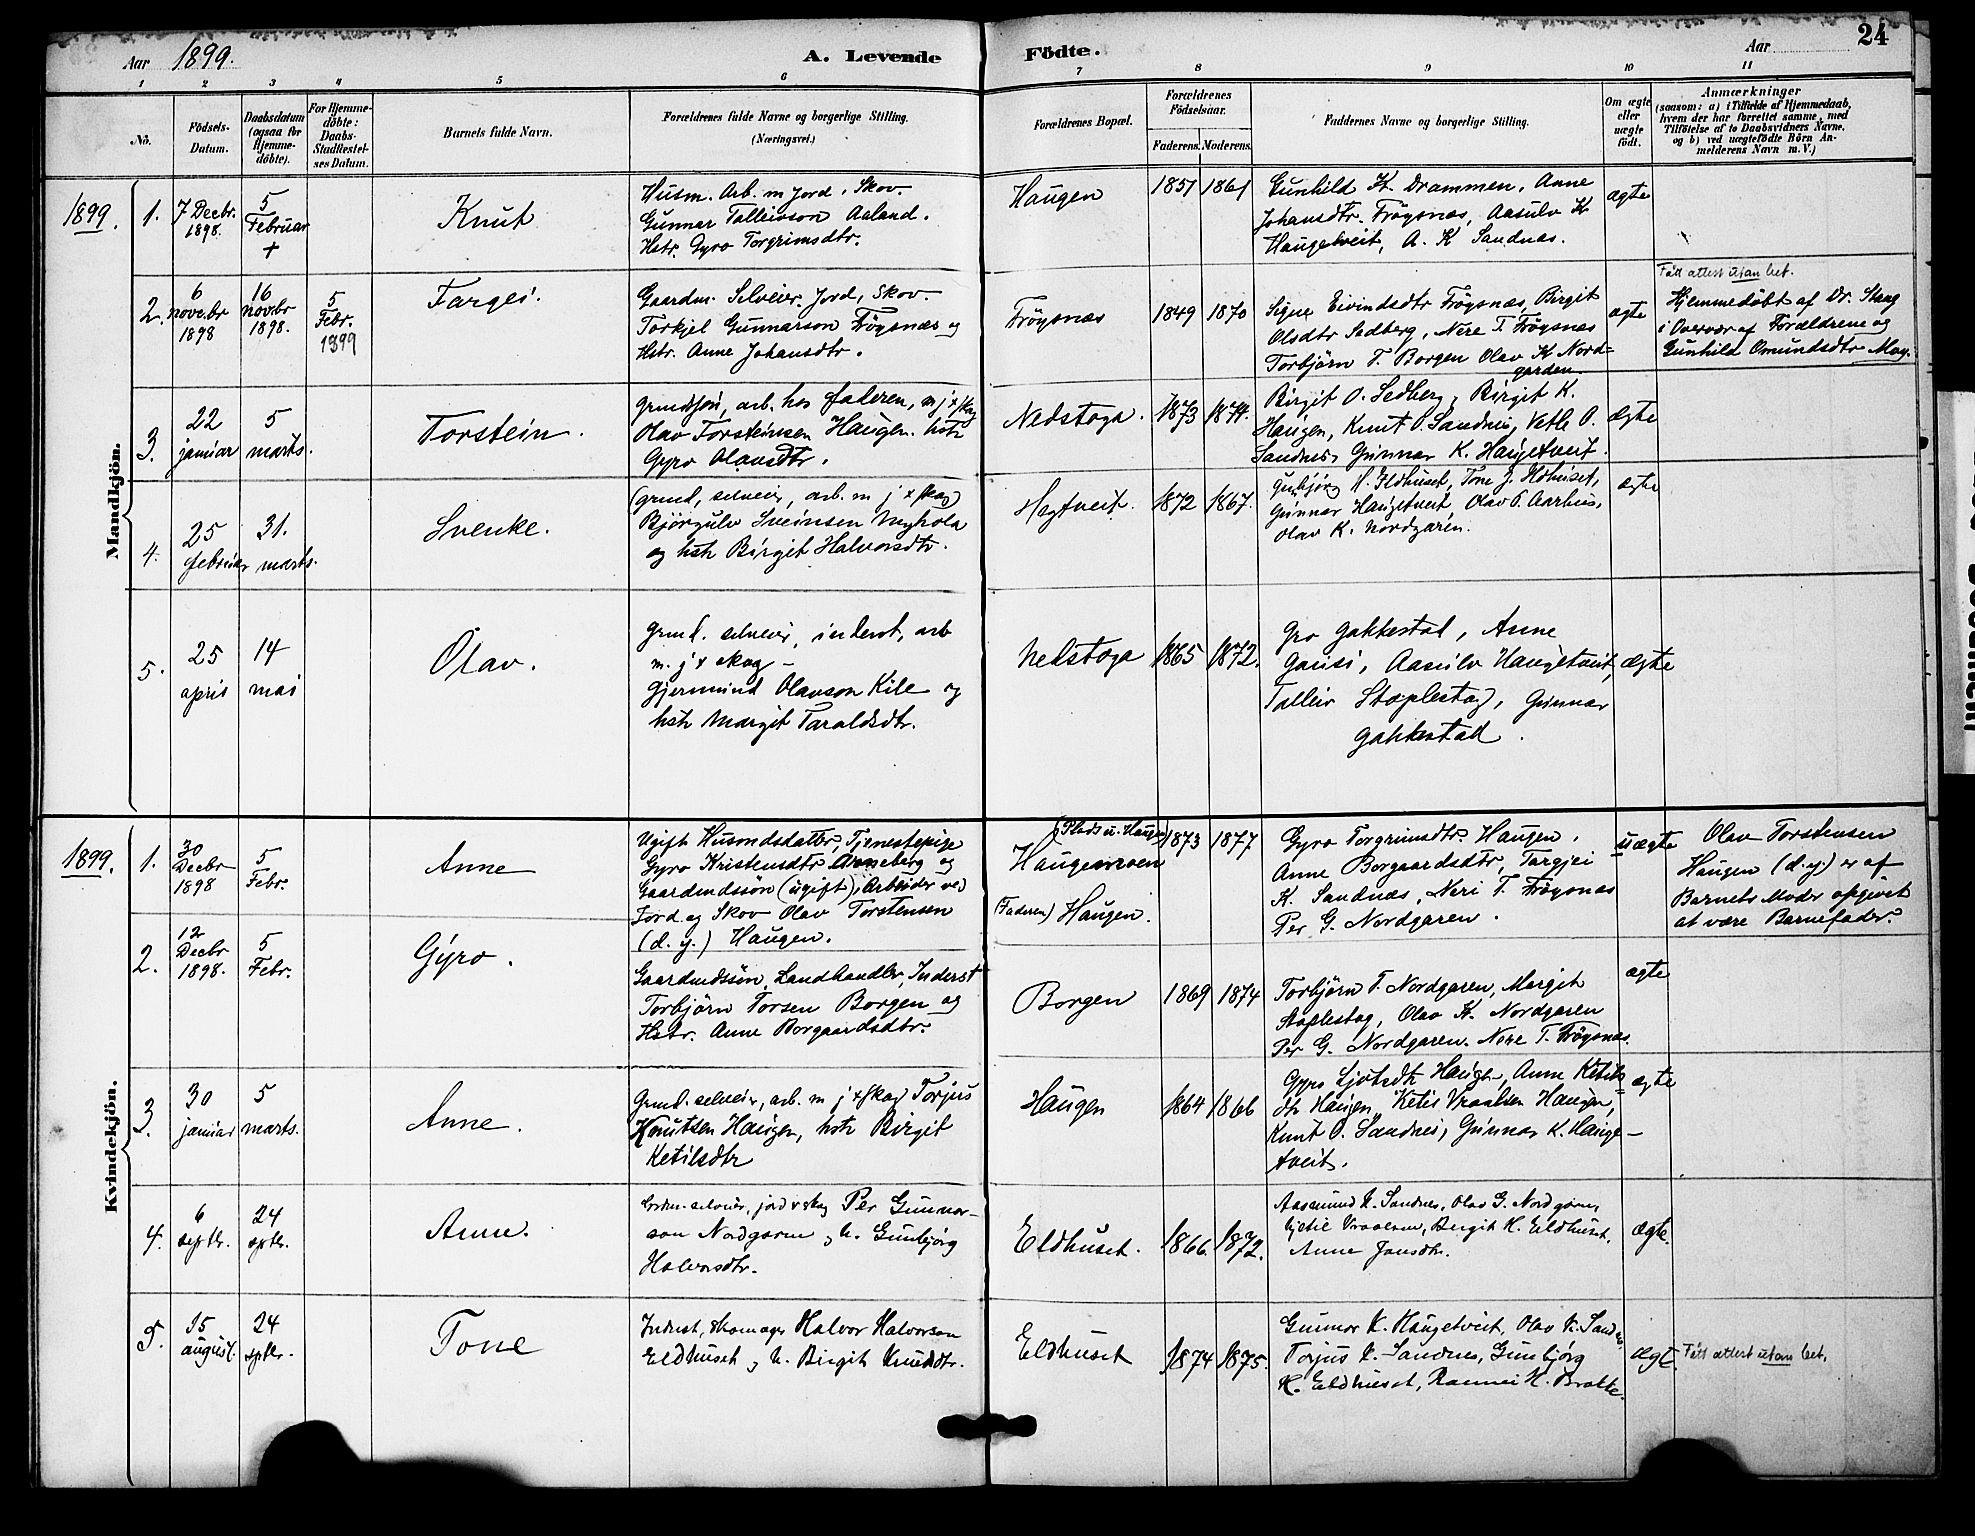 Aar 1899.
A. Levende Födte.
Aar
24
1 2 3 4 5 6 7 8 9 10 11
No.
Födsels-Datum.
Daabsdatum (ogsaa for Hjemme-döbte).
For Hjemme-döbte: Daabs-Stadfæstel-ses Datum.
Barnets fulde Navn.
Forældrenes fulde Navne og borgerlige Stilling.
(Næringsvei.)
Forældrenes Bopæl.
Forældrenes Födselsaar.
Faderens. Moderens.
Faddernes Navne og borgerlige Stilling.
Om ægte eller uægte födt.
Anmærkninger
(saasom: a) i Tilfælde af Hjemmedaab,
hvem der har forrettet samme, med
Tilföielse af to Daabsvidners Navne,
og b) ved uægtefödte Börn An-
melderens Navn m. V.)
Mandkjön.
1899.
1. 7 Decbr. 1898. 5 Februar + Knut
Husm. Arb. m Jord, Skov.
Gunnar Talleivson Aaland.
Hstr. Gyro Torgrimsdtr.
Haugen 1851 1861
Gunhild K. Drammen, Anne
Johansdtr. Frøysnæs, Aasulv K
Haugetveit, A. K Sandnæs.
ægte
2. 6 novebr 1898 16 novbr 1898. 5 Febr. 1899 Targei.
Gaardm. Selveier. Jord, Skov.
Torkjel Gunnarson Frøysnæs og
Hstr. Anne Johansdtr.
Frøysnæs 1849 1870
Signe Eivindsdtr Frøysnæs, Birgit
Olsdtr Sedberg, Nere T. Frøysnæs
Torbjörn T. Borgen Olav K Nord=
garden.
ægte
Fått attest utan bet.
Hjemmedöbt af Dr. Stang
i Overvær af Forældrene og
Gunhild Omundsdtr Moy.
3. 22 januar 5 marts. Torstein.
arb. hos faderen, m j + skog
Olav Torsteinsen Haugen. hstr
Gyro Olavsdtr.
Nedstoga. 1873 1874.
Birgit O. Sedberg, Birgit K.
Haugen, Knut O. Sandnes, Vetle O.
Sandnes, Gunnar K. Haugetveit.
ægte
4. 25 februar 31. marts. Svenke.
(grund, selveier, arb. m j + skog)
Bjørgulv Sveinsen Myhola
og hstr Birgit Halvorsdtr.
Hegtveit. 1872 1867.
Gunbjørg H. Eldhuset, Tone J. Eldhuset,
Gunnar Haugetveit, Olav P. Aarhus,
Olav K. Nordgaren.
ægte
5. 25 april 14 mai Olav.
Grund. selveier, inderst, arb
m. j + skog -
Gjermund Olavson Kile og
hstr Margit Taraldsdtr.
Nedstoga 1865 1872.
Gro Gakkestad, Anne
Aasulv Haugetveit,
Talleiv Staplestog), Gunnar
Gakkestad.
ægte
Kvindekjön.
1899.
1. 30 Decbr 1898 5 Febr. Anne
Ugift Husmdsdatter, Tjenestepige
Gyro Kristensdtr Anneberg og
Gaardmdssön (ugift), Arbeider ved
Jord og Skov Olav Torstensen
(d. y.) Haugen.
(Plads u. Haugen)
Haugemoen
(Faderen) Haugen.
1873 1877
Gyro Torgrimsdtr. Haugen.
Anne Borgaardsdtr, Targjei
K. Sandnæs, Neri T. Frøysnæs
Per G. Nordgaren.
uægte
Olav Torstensen
Haugen (d. y.) er af
Barnets Moder opgivet
at være Barnefader.
2. 12 Decbr 1898. 5 Febr. Gyro.
Gaardmdssön, Landhandler, Inderst
Torbjörn Torsen Borgen og
Hstr. Anne Borgaardsdtr.
Borgen 1869 1874
Torbjörn T. Nordgaren, Margit
Staplestog, Olav K. Nordgaren
Per G. Nordgaren. Nere T. Frøysnæs.
ægte
3. 30 januar 5 marts. Anne.
Grund. selveier, arb. m j + skog) Torjus
Knutsen Haugen, hstr Birgit
Ketilsdtr
Haugen 1864 1866
Gyro Ljotsdtr Haugen, Anne Ketils=
dtr Haugen, Ketil Vraalsen Haugen,
Knut O. Sandnes, Gunnar K. Hauge-
tveit.
ægte
4. 6 septbr. 24 sptbr. Anne.
selveier, jord + skog Per Gunnar-
son Nordgaren og h. Gunbjørg
Halvorsdtr.
Eldhuset. 1866. 1872.
Aasmund K. Sandnes, Olav G. Nordgaren,
Kjetil Vraalsen, Birgit H. Eldhuset,
Anne Jonsdtr.
ægte.
5. 15 august. 24 sptbr. Tone
Inderst, skomager Halvor Halvorson
Eldhuset og h. Birgit Knutsdtr.
Eldhuset 1874 1875.
Gunnar K. Haugetveit, Olav K. Sandnes,
Torjus K. Sandnes, Gunbjørg
H. Eldhuset, Rannei H. Brotte.
ægt.
Fått attest utan bet.